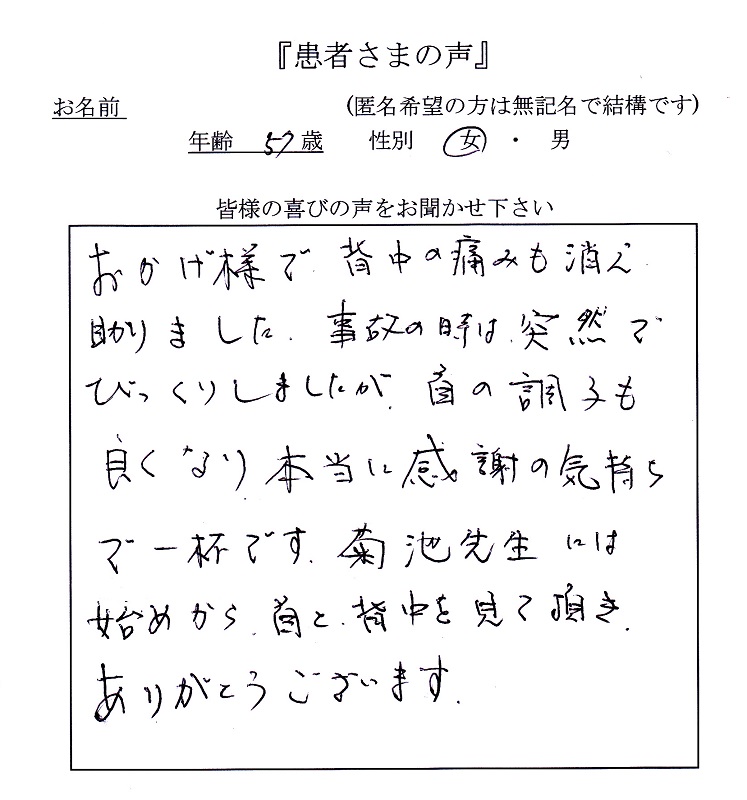 『患者さまの声』
お名前　　　　　　　　　　(匿名希望の方は無記名で結構です)
年齢　57歳　性別　女・男
皆様の喜びの声をお聞かせ下さい
おかげ様で、背中の痛みも消え
助りました。事故の時は、突然で
びっくりしましたが、首の調子も
良くなり本当に感謝の気持ち
で一杯です。菊池先生には
始めから、首と、背中を見て頂き、
ありがとうございます。